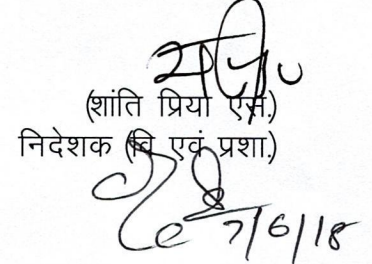 (शांति प्रिया एस.)
निदेशक (वि एवं प्रशा.)
7/6/18